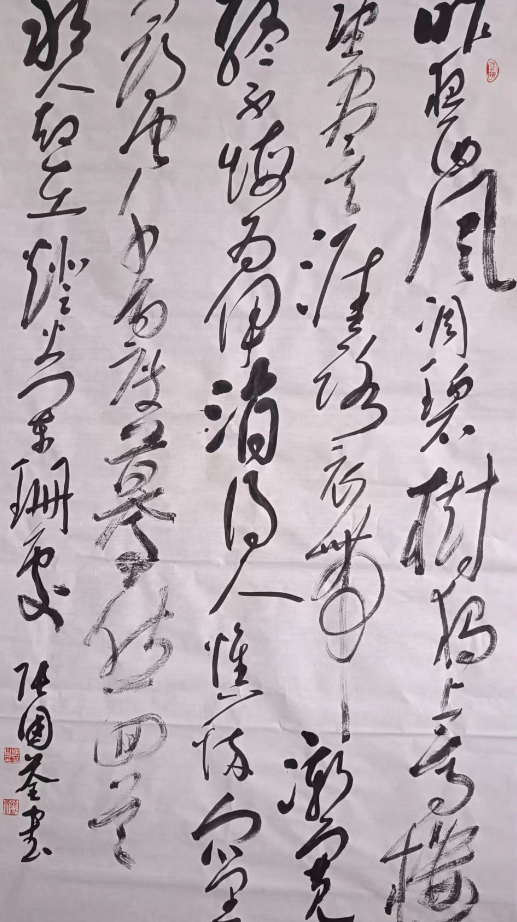 昨夜西风凋碧樹独上高楼
望尽天涯路衣带渐宽
终不悔为伊消得人憔悴众里
寻他千百度蓦然回首
那人却在灯火阑珊处
张国荃书